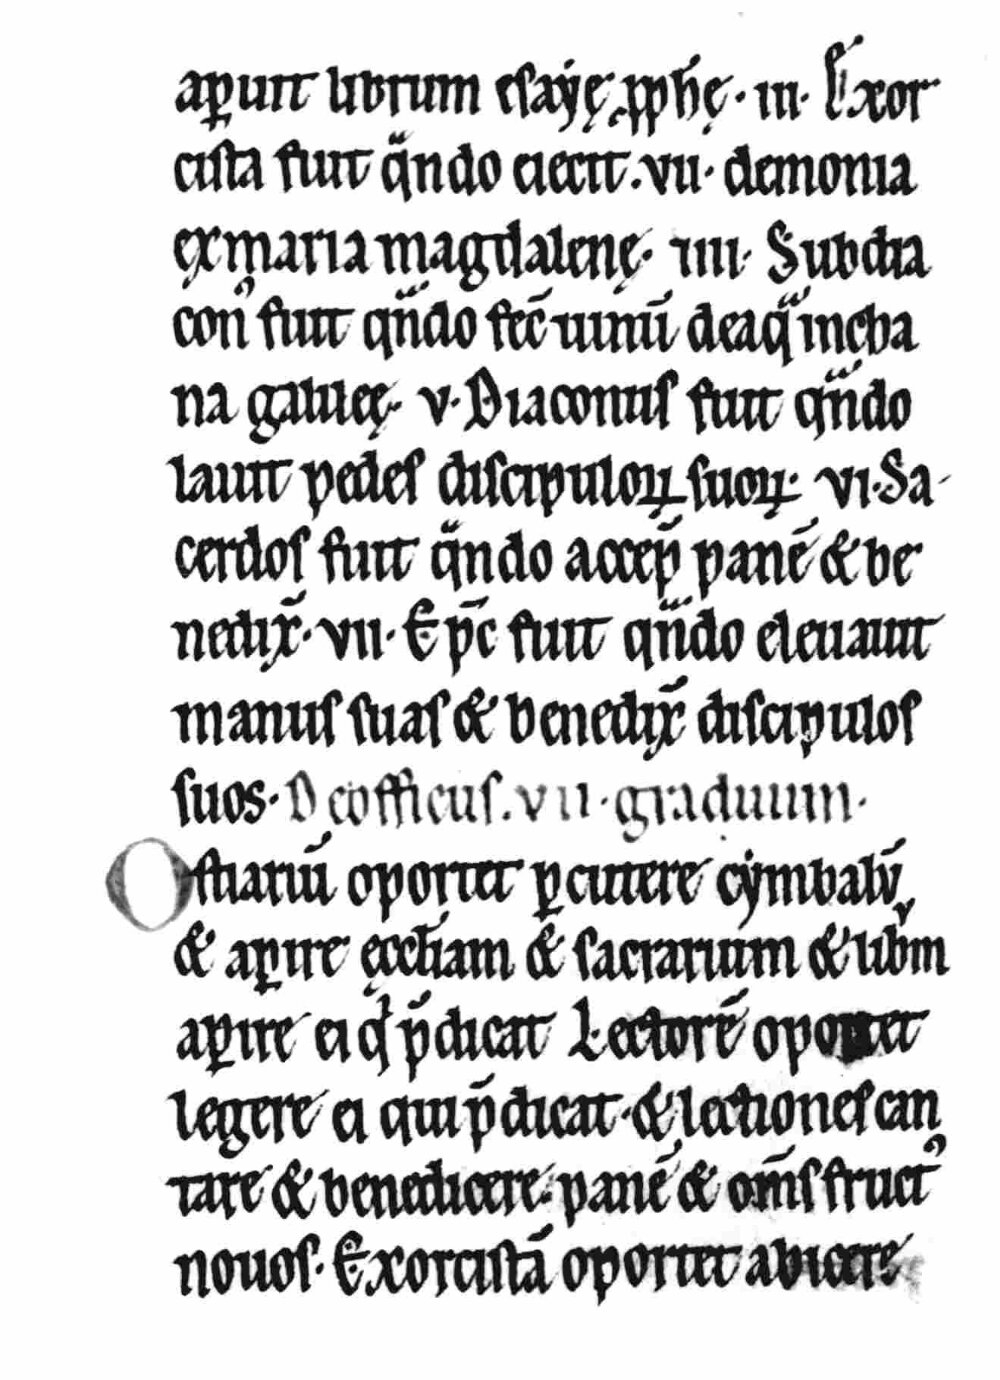 aꝑuit librum esayę ꝓphę. iii. Exor
cista fuit qͣndo eiecit. vii. demonia
ex maria magdalenę. iiii. Subdia
conꝰ fuit qͣndo fec̄ uinū de aqͣ in cha
na galileę. v. Diaconus fuit qͣndo
lauit pedes discipuloꝝ suoꝝ. vi. Sa
cerdos fuit qͣndo accep̄ panē & be
nedix̄. vii. Ep̄c fuit qͣndo eleuauit
manus suas & benedix̄ discipulos
suos. De officiis. vii. graduum.
Ostiariū oportet ꝑcutere cymbalū,
& aꝑire ęccl̄iam & sacrarium & libͬm
aꝑire ei qͥ p̄dicat Lectorē oportet
legere ei qui p̄dicat. & lectiones can
tare & benedicere. panē & om̄s fructꝰ
nouos. Exorcistā oportet abicere